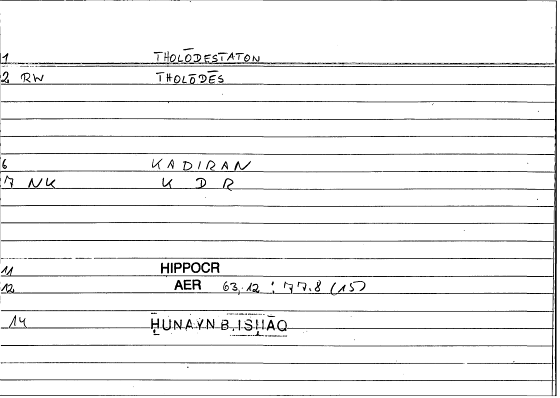 1 THOLŌDESTATON
2 RW THOLŌDĒS
6 KADIRAN
7 NK K D R
11 HIPPOCR
12 AER 63,12 : 77.8 (15)
14 ḤUNAYN B. ISḤĀQ